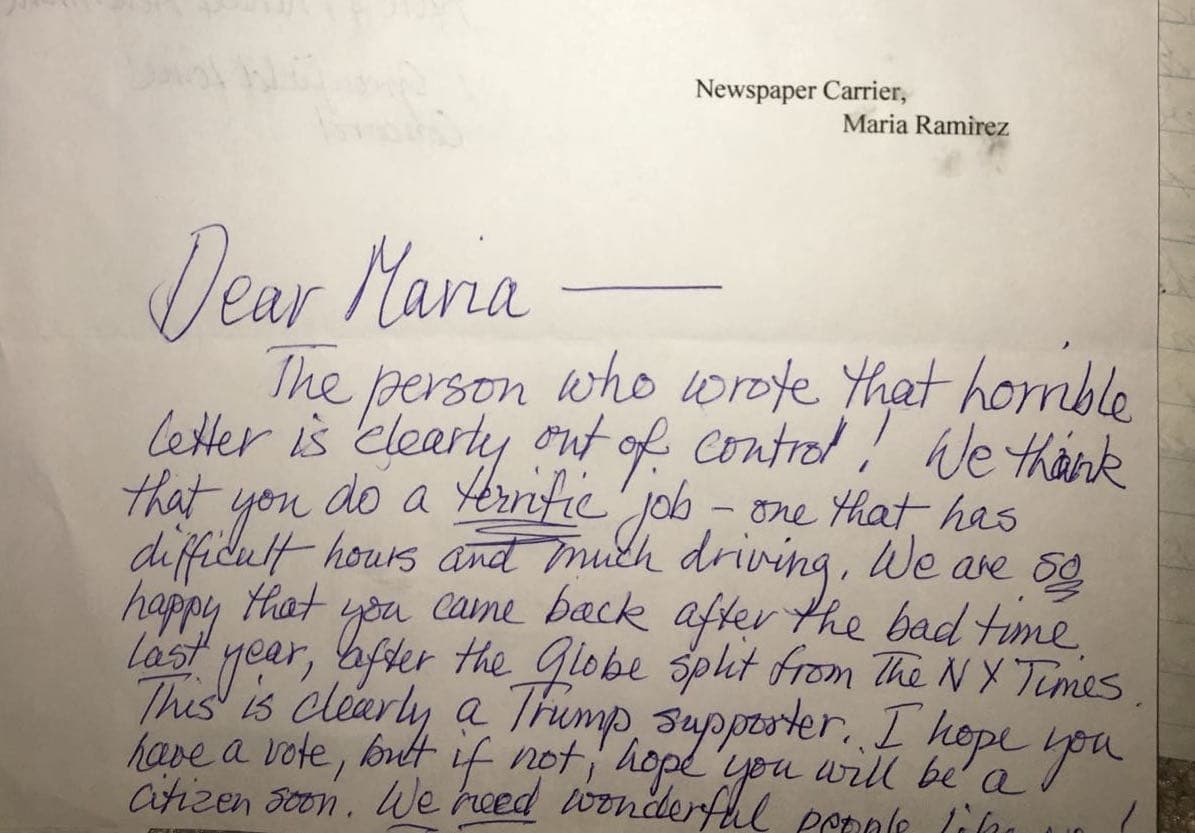 Newspaper Carrier,
Maria Ramirez
Dear Maria —
The person who wrote that horrible
letter is clearly out of control! We think
that you do a terrific job - one that has
difficult hours and much driving. We are so
happy that you came back after the bad time
last year, after the Globe split from The NY Times.
This is clearly a Trump supporter. I hope you
have a vote, but if not, hope you will be a
citizen soon. We need wonderful people like